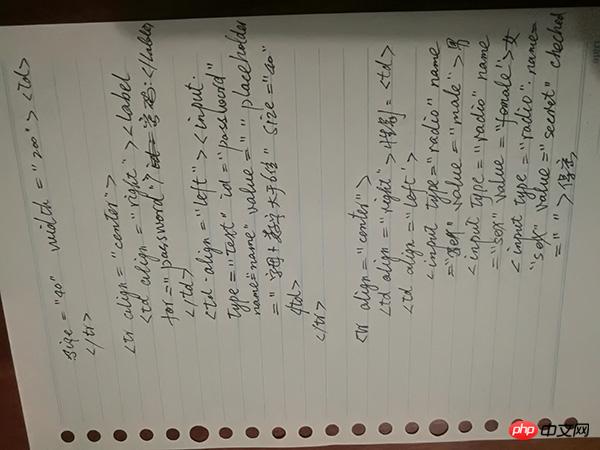 size="40" width="200"><td>
</tr>
<tr align="center">
<td align="right"><label
for="password">密码:</lable>
</td>
<td align="left"><input
type="text" id="password"
name="name" value="" placeholder
="字母+数字大于6位" size="40"
</td>
</tr>
<tr align="center">
<td align="right">性别:<td>
<td align="left">
<input type="radio" name
="sex" value="male">男
<input type="radio" name
="sex" value="fomale">女
<input type="radio" name=
"sex" value="secret" chechod
="">保密
php 中文网